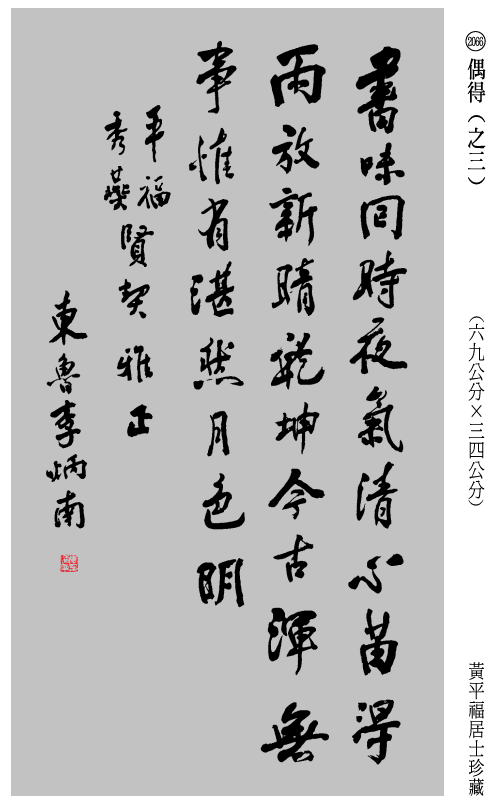 2066 偶得（之三）
（六九公分×三四公分）
黃平福居士珍藏
書味回時夜氣清心苗得
雨放新晴乾坤今古渾無
事惟有湛然月色明
平福
秀燕
賢契雅正
東魯李炳南